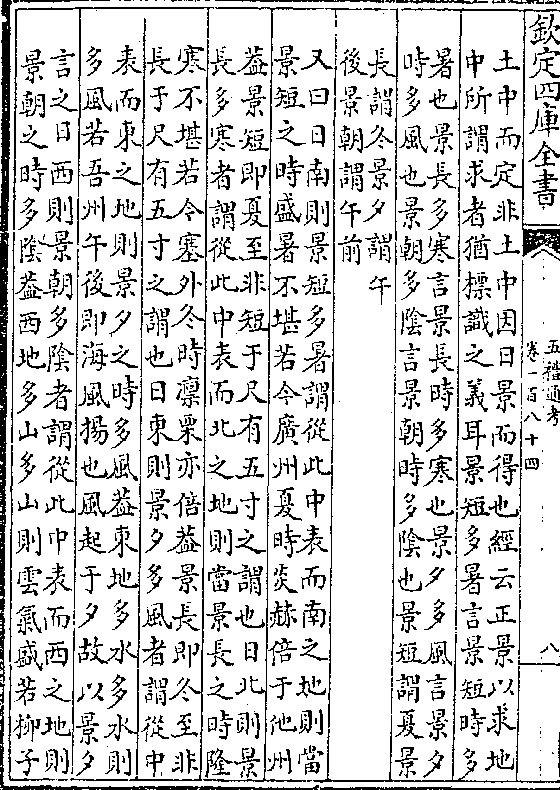 欽定四庫全書
五禮通考
卷一百八十四
八
土中而定非土中因日景而得也經云正景以求地
中所謂求者猶標識之義耳景短多暑言景短時多
暑也景長多寒言景長時多寒也景夕多風言景夕
時多風也景朝多陰言景朝時多陰也景短謂夏景
長謂冬景夕謂午
後景朝謂午前
又曰日南則景短多暑謂從此中表而南之地則當
景短之時盛暑不堪若今廣州夏時炎赫倍于他州
葢景短即夏至非短于尺有五寸之謂也日北則景
長多寒者謂從此中表而北之地則當景長之時隆
寒不堪若今塞外冬時凛栗亦倍葢景長即冬至非
長于尺有五寸之謂也日東則景夕多風者謂從中
表而東之地則景夕之時多風葢東地多水多水則
多風若吾州午後即海風揚也風起于夕故以景夕
言之日西則景朝多陰者謂從此中表而西之地則
景朝之時多陰葢西地多山多山則雲氣盛若柳子